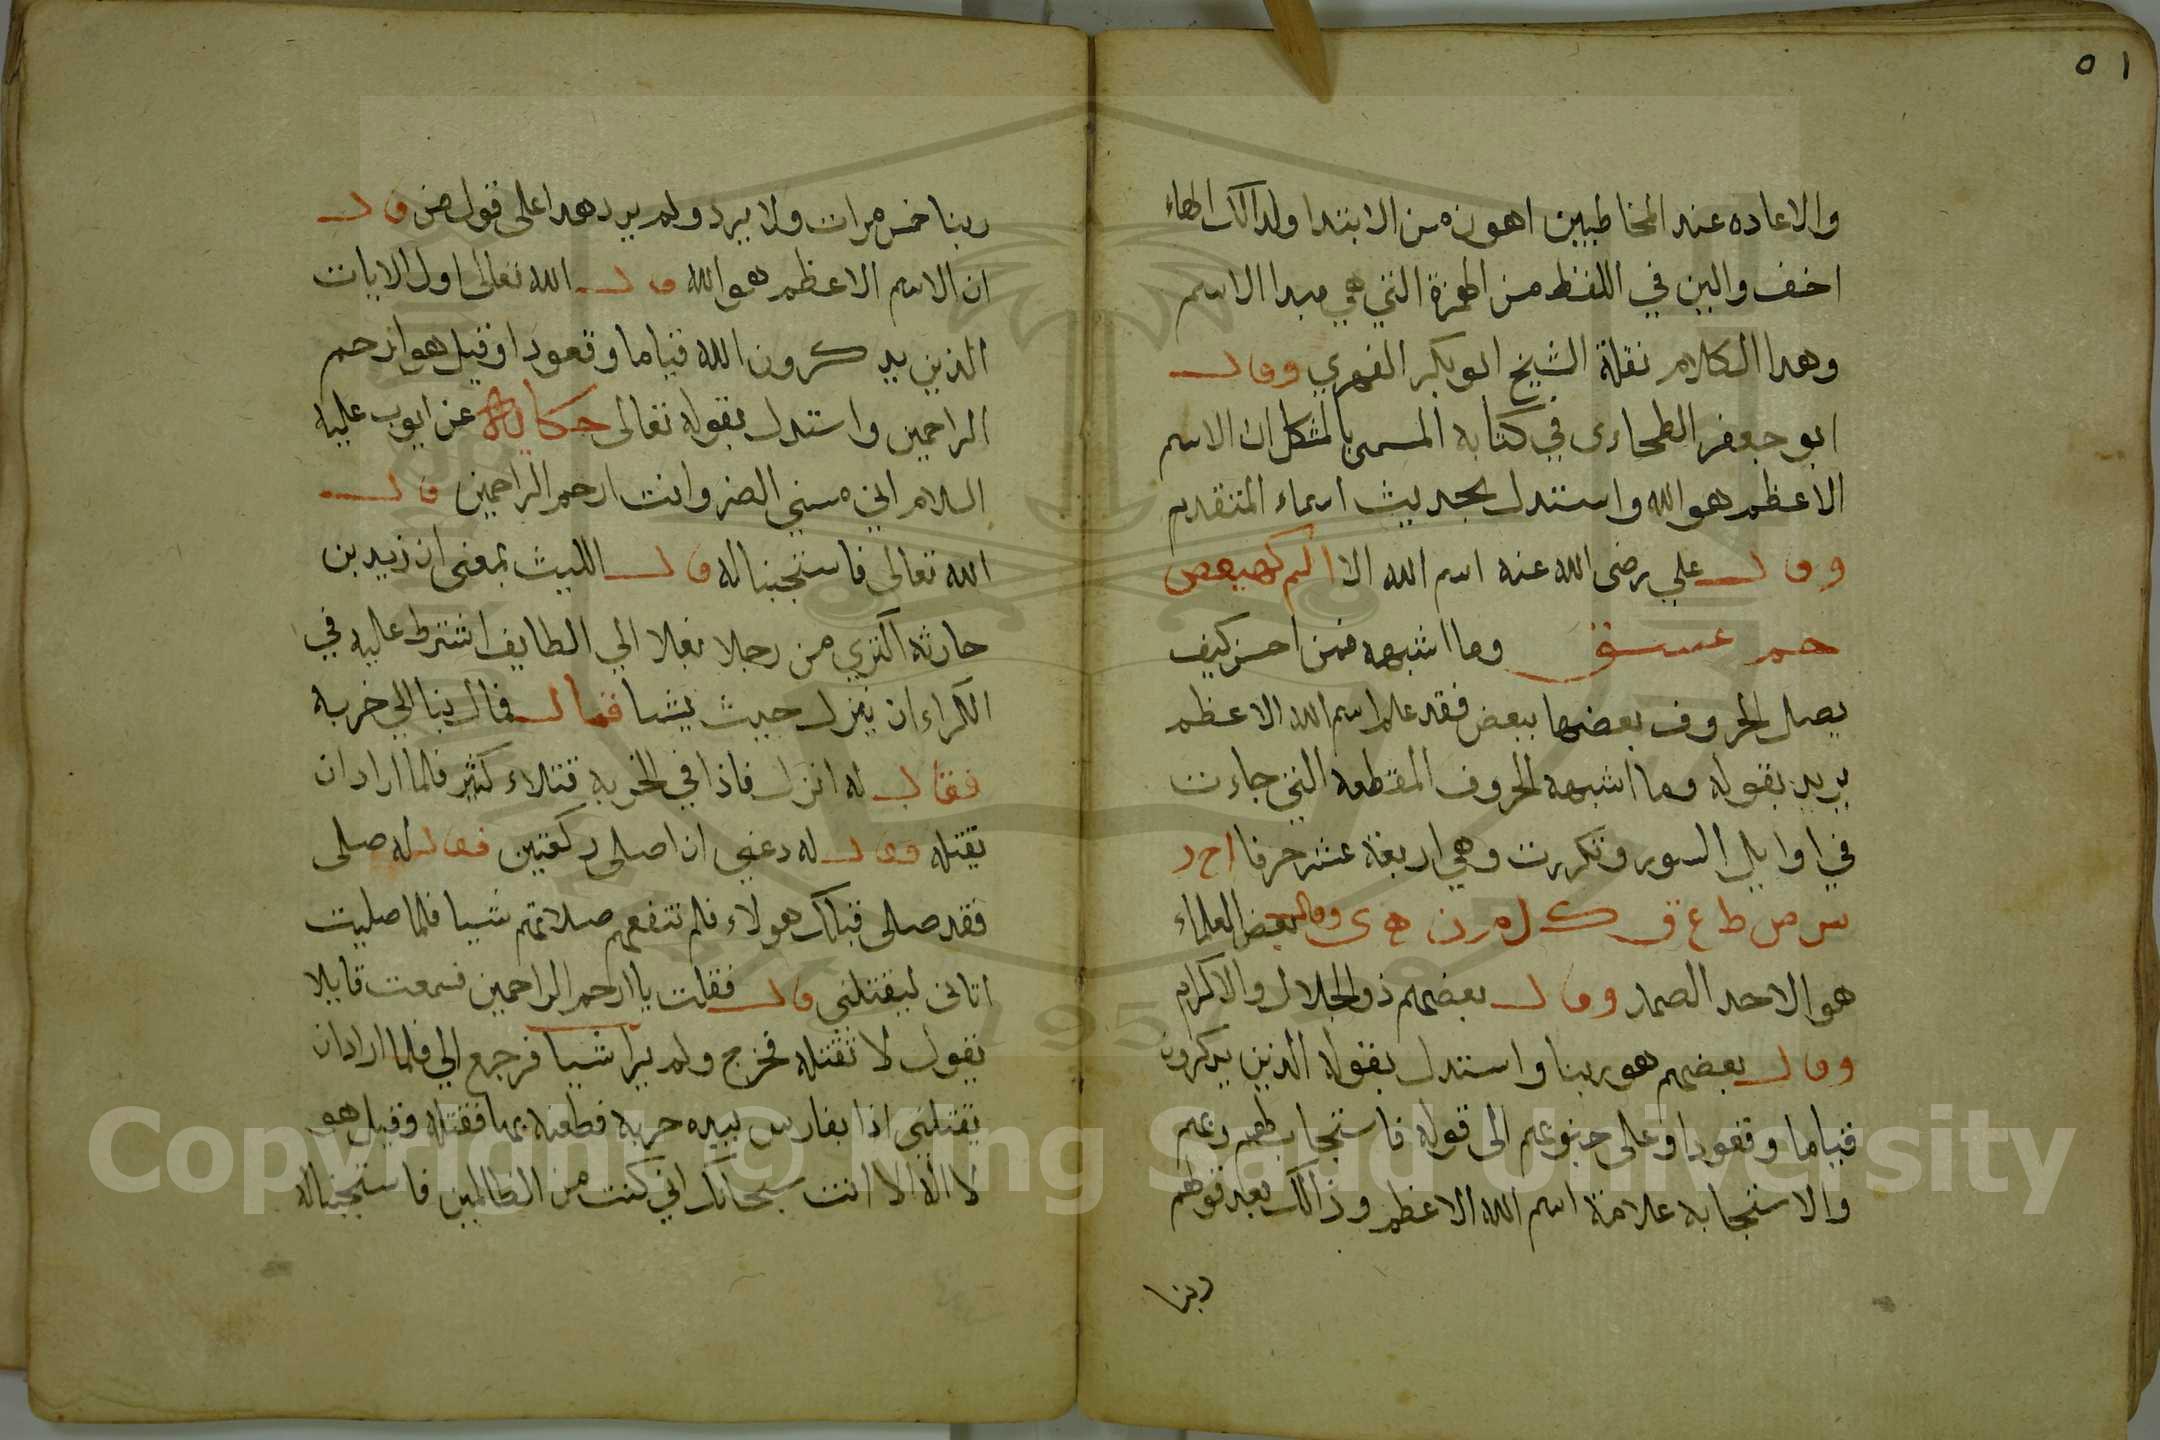 ٥١
والاعاده عند المخاطبين اهون من الابتدا ولدالك الهاء
اخف والين في اللفظ من الهمزة التي هي مبدا الاسم
وهدا الكلام نقلة الشيخ ابو بكر الفهري وقال
ابو جعفر الطحاوى في كتابه المسمى بالمشكل ان الاسم
الاعظم هو الله واستدل بحديث اسماء المتقدم
وقال علي رضى الله عنه اسم الله الاكبر كهيعص
حم عسق وما اشبهه فمن احسن كيف
يصل الحروف بعضها ببعض فقد علم اسم الله الاعظم
يريد بقوله وما اشبهه الحروف المقطعه التي جاءت
في اوايل السور وتكررت وهي اربعة عشر حرفا ا ح ر
س ص ط ع ق ك ل م ن ه ى وقال بعض العلماء
هو الاحد الصمد وقال بعضهم ذو الجلال والاكرام
وقال بعضهم هو ربنا واستدل بقوله الذين يدكرون
قياما وقعودا وعلى جنوبهم الى قوله فاستجاب لهم ربهم
والاستجابه علامة اسم الله الاعظم وذالك بعد قولهم
ربنا
ربنا خمس مرات ولا يرد ولم يرد هدا على قول من قال
ان الاسم الاعظم هو الله قال الله تعالى اول الايات
الذين يدكرون الله قياما وقعودا وقيل هو ارحم
الراحمين واستدل بقوله تعالى حكاية عن ايوب عليه
السلام اني مسني الضر وانت ارحم الراحمين قال
الله تعالى فاستجبنا له قال الليث بمعنى ان زيد بن
حارثه اكتري من رجلا بغلا الي الطايف اشترط عليه في
الكراء ان ينزل حيث يشا فقال فمال بنا الي خربه
فقال له انزل فاذا في الخربه قتلاء كثير فلما اراد ان
يقتله فقال له دعني ان اصلى ركعتين فقال له صلى
فقد صلى قبلك هولاء فلم تنفعهم صلاتهم شيا فلما صليت
اتانى ليقتلنى قال فقلت يا ارحم الراحمين فسمعت قايلا
يقول لا تقتله فخرج ولم يرا شيا فرجع الي فلما اراد ان
يقتلني اذا بفارس بيده حربه فطعنه بها فقتله وقيل هو
لا اله الا انت سبحانك اني كنت من الظالمين فاستجبنا له
Copyright © King Saud University
1957